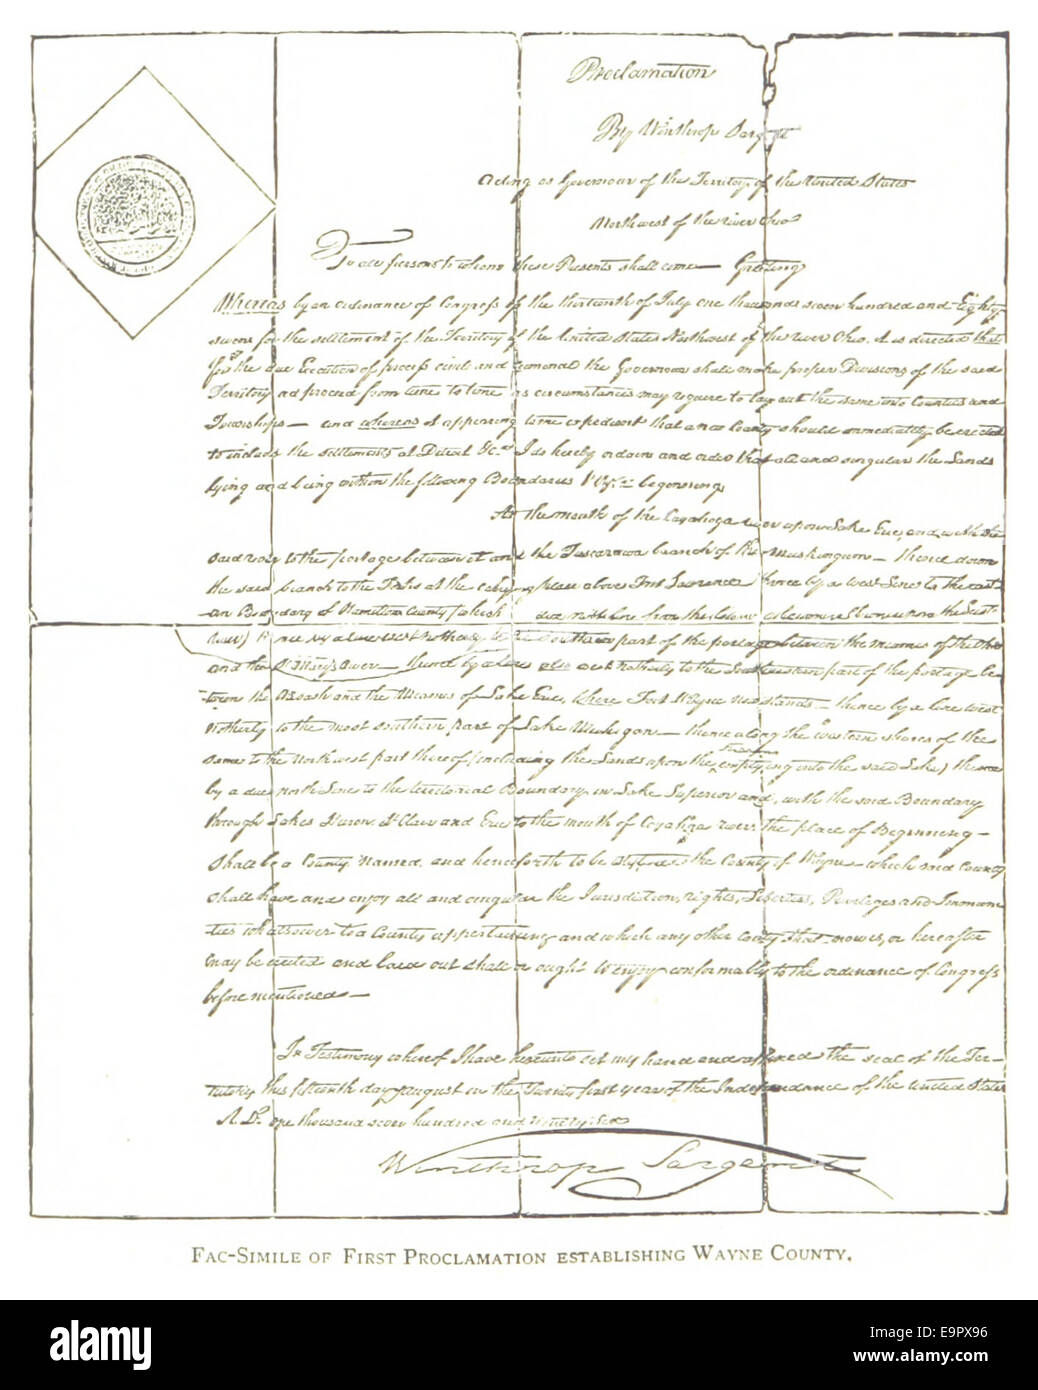 Proclamation
By Winthrop Sargent
Acting as Governour of the Territory of the United States
Northwest of the river Ohio
To all persons to whom these Presents shall come — Greeting
Whereas by an ordinance of Congress of the thirteenth of July one thousand seven hundred and Eighty
seven for the settlement of the Territory of the United States Northwest of the river Ohio. it is directed that
for the due Execution of process civil and criminal the Governour shall make proper Divisions of the said
Territory and proceed from time to time as circumstances may require to lay out the same into Counties and
Townships — and whereas it appearing time expedient that a new County should immediately be erected
to include the settlements at Detroit &c. I do hereby ordain and order that all and singular the Lands
lying and being within the following Boundaries Viz. beginning
At the mouth of the Cayahoga river upon Lake Erie, and with the
said river to the portage between it and the Tuscarawa branch of the Muskingum — thence down
the said branch to the Forks at the place above Fort Lawrence thence by a west Line to the east
ern Boundary of Hamilton County (which due north Line from the
River) thence by a line west northerly to the southern part of the portage between the miamis of the Ohio
and the St Mary's river — thence by a Line also west northerly to the Southwestern part of the portage be-
tween the Wabash and the Miamis of Lake Erie, where Fort Wayne now stands — thence by a line west
northerly to the most southern part of Lake Michigan — thence along the western shores of the
same to the Northwest part thereof (including the Lands upon the streams emptying into the said Lake) thence
by a due north Line to the territorial Boundary in Lake Superior and, with the said Boundary
through Lakes Huron St Clair and Erie to the mouth of Cayahoga river the place of Beginning —
Shall be a County named and henceforth to be styled the County of Wayne — which said County
shall have and enjoy all and singular the Jurisdiction, rights, Liberties, Privileges and Immuni
ties whatsoever to a County appertaining and which any other County that now is, or hereafter
may be erected and laid out shall or ought to enjoy conformably to the ordinance of Congress
before mentioned —
In Testimony whereof I have hereunto set my hand and affixed the seal of the Ter-
ritory this fifteenth day August in the Twenty first year of the Independance of the United States
A. D. one thousand seven hundred and Ninety six
Winthrop Sargent
FAC-SIMILE OF FIRST PROCLAMATION ESTABLISHING WAYNE COUNTY.
alamy stock photo
E9PX96
www.alamy.com